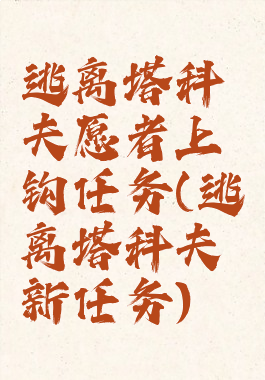 逃离塔科
夫愿者上
钩任务(逃
离塔科夫
新任务)